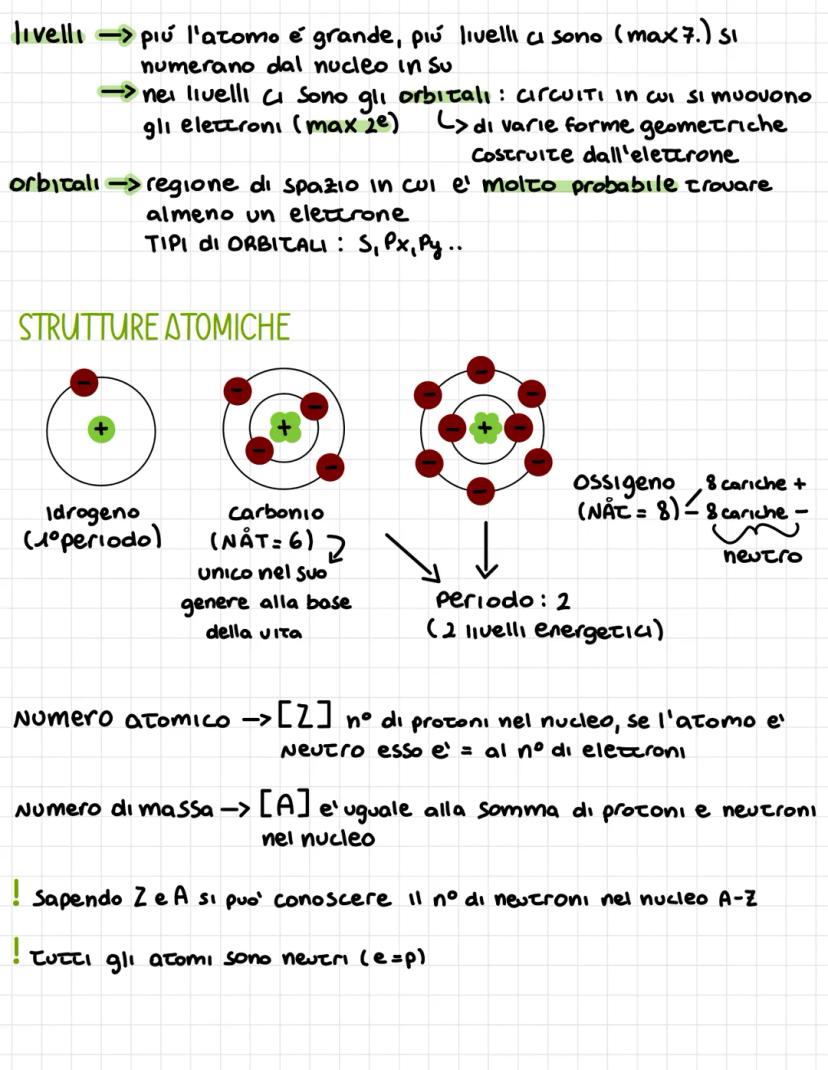 livelli → piú l'atomo é grande, piú livelli ci sono (max 7.) si
numerano dal nucleo in su
→ nei livelli ci sono gli orbitali : circuiti in cui si muovono
gli elettroni (max 2e) ↳ di varie forme geometriche
costruite dall'elettrone
orbitali → regione di spazio in cui e' molto probabile trovare
almeno un elettrone
TIPI di ORBITALI : S, Px, Py ..
STRUTTURE ATOMICHE
Idrogeno
(1° periodo)
carbonio
(NÅT=6)
unico nel suo
genere alla base
della vita
Ossigeno
(NÅT = 8)
8 cariche +
8 cariche -
neutro
Periodo : 2
(2 livelli energetici)
Numero atomico → [Z] n° di protoni nel nucleo, se l'atomo e'
neutro esso e' = al n° di elettroni
Numero di massa → [A] e' uguale alla somma di protoni e neutroni
nel nucleo
! Sapendo Z e A si puo' conoscere il n° di neutroni nel nucleo A-Z
! Tutti gli atomi sono neutri (e=p)